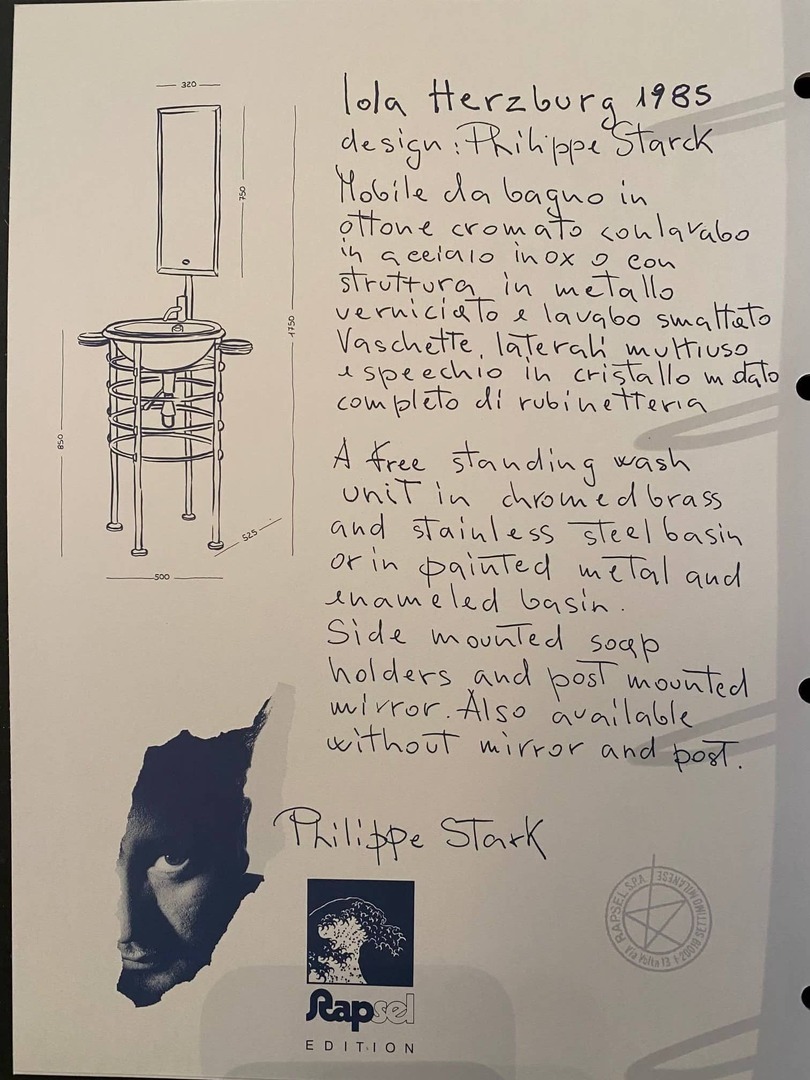 320
750
1750
850
525
500
lola Herzburg 1985
design: Philippe Starck
Mobile da bagno in
ottone cromato con lavabo
in acciaio inox o con
struttura in metallo
verniciato e lavabo smaltato
Vaschette laterali multiuso
e specchio in cristallo m dato
completo di rubinetteria
A free standing wash
unit in chromed brass
and stainless steel basin
or in painted metal and
enameled basin.
Side mounted soap
holders and post mounted
mirror. Also available
without mirror and post.
Philippe Stark
Rapsel
EDITION
RAPSEL SPA Via Volta 13 I-20019 SETTIMO MILANESE